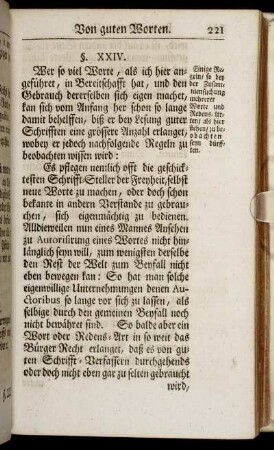 Von guten Worten. 221
§. XXIV.
Wer so viel Worte, als ich hier an-
geführet, in Bereitschafft hat, und den
Gebrauch dererselben sich eigen machet,
kan sich vom Anfang her schon so lange
damit behelffen, biß er bey Lesung guter
Schrifften eine grössere Anzahl erlanget,
wobey er jedoch nachfolgende Regeln zu
beobachten wissen wird:
Einige Re-
geln/ so bey
der Zusam-
mensuchung
mehrerer
Worte und
Redens-Ar-
ten/ als hier
stehen/ zu be-
obachten
seyn dürff-
ten.
Es pflegen nemlich offt die geschick-
testen Schrifft-Steller der Freyheit, selbst
neue Worte zu machen, oder doch schon
bekante in andern Verstande zu gebrau-
chen, sich eigenmächtig zu bedienen.
Alldieweilen nun eines Mannes Ansehen
zu Autorisirung eines Wortes nicht hin-
länglich seyn will, zum wenigsten derselbe
den Rest der Welt zum Beyfall nicht
eben bewegen kan: So hat man solche
eigenwillige Unternehmungen denen Au-
ctoribus so lange vor sich zu lassen, als
selbige durch den gemeinen Beyfall noch
nicht bewähret sind. So balde aber ein
Wort oder Redens-Art in so weit das
Bürger Recht erlanget, daß es von gu-
ten Schrifft-Verfassern durchgehends
oder doch nicht eben gar zu selten gebraucht
wird,